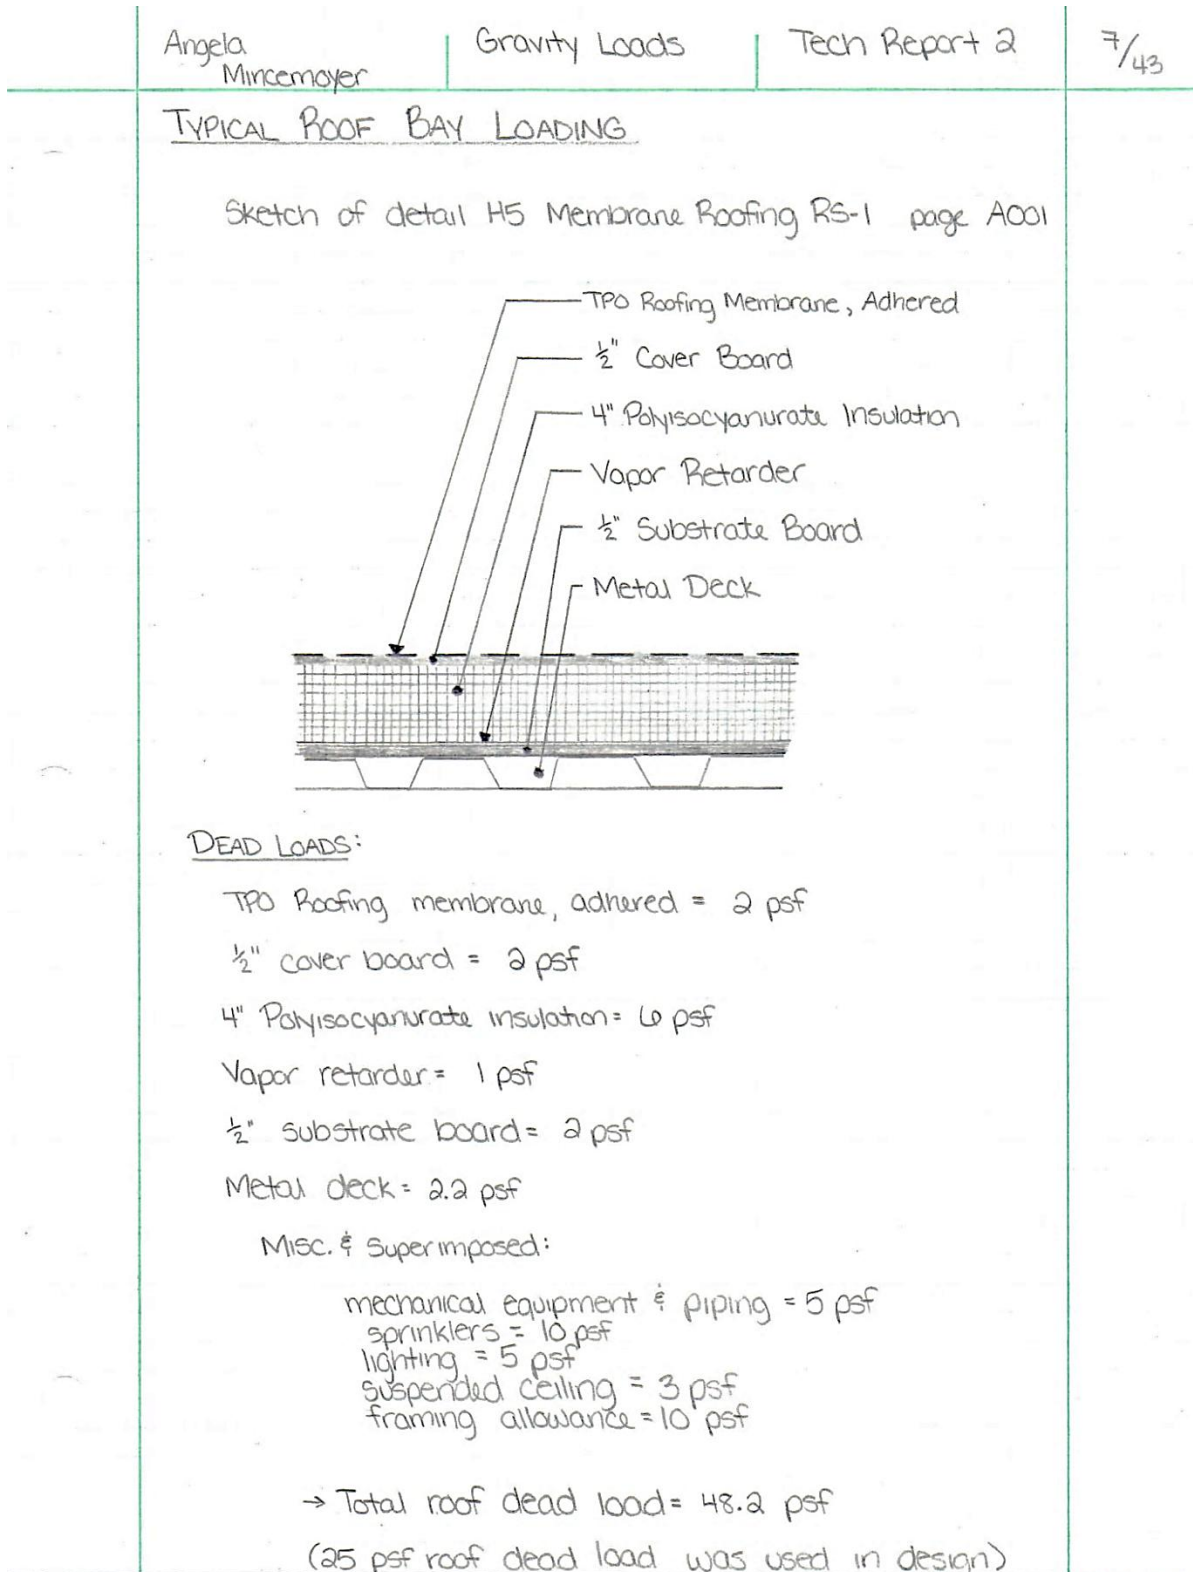 Angela
Mincemoyer
Gravity Loads
Tech Report 2
7/43
TYPICAL ROOF BAY LOADING
Sketch of detail H5 Membrane Roofing RS-1 page A001
TPO Roofing Membrane, Adhered
½" Cover Board
4" Polyisocyanurate Insulation
Vapor Retarder
½" Substrate Board
Metal Deck
DEAD LOADS:
TPO Roofing membrane, adhered = 2 psf
½" cover board = 2 psf
4" Polyisocyanurate insulation = 6 psf
Vapor retarder = 1 psf
½" substrate board = 2 psf
Metal deck = 2.2 psf
Misc. & Superimposed:
mechanical equipment & piping = 5 psf
sprinklers = 10 psf
lighting = 5 psf
suspended ceiling = 3 psf
framing allowance = 10 psf
→ Total roof dead load = 48.2 psf
(25 psf roof dead load was used in design)